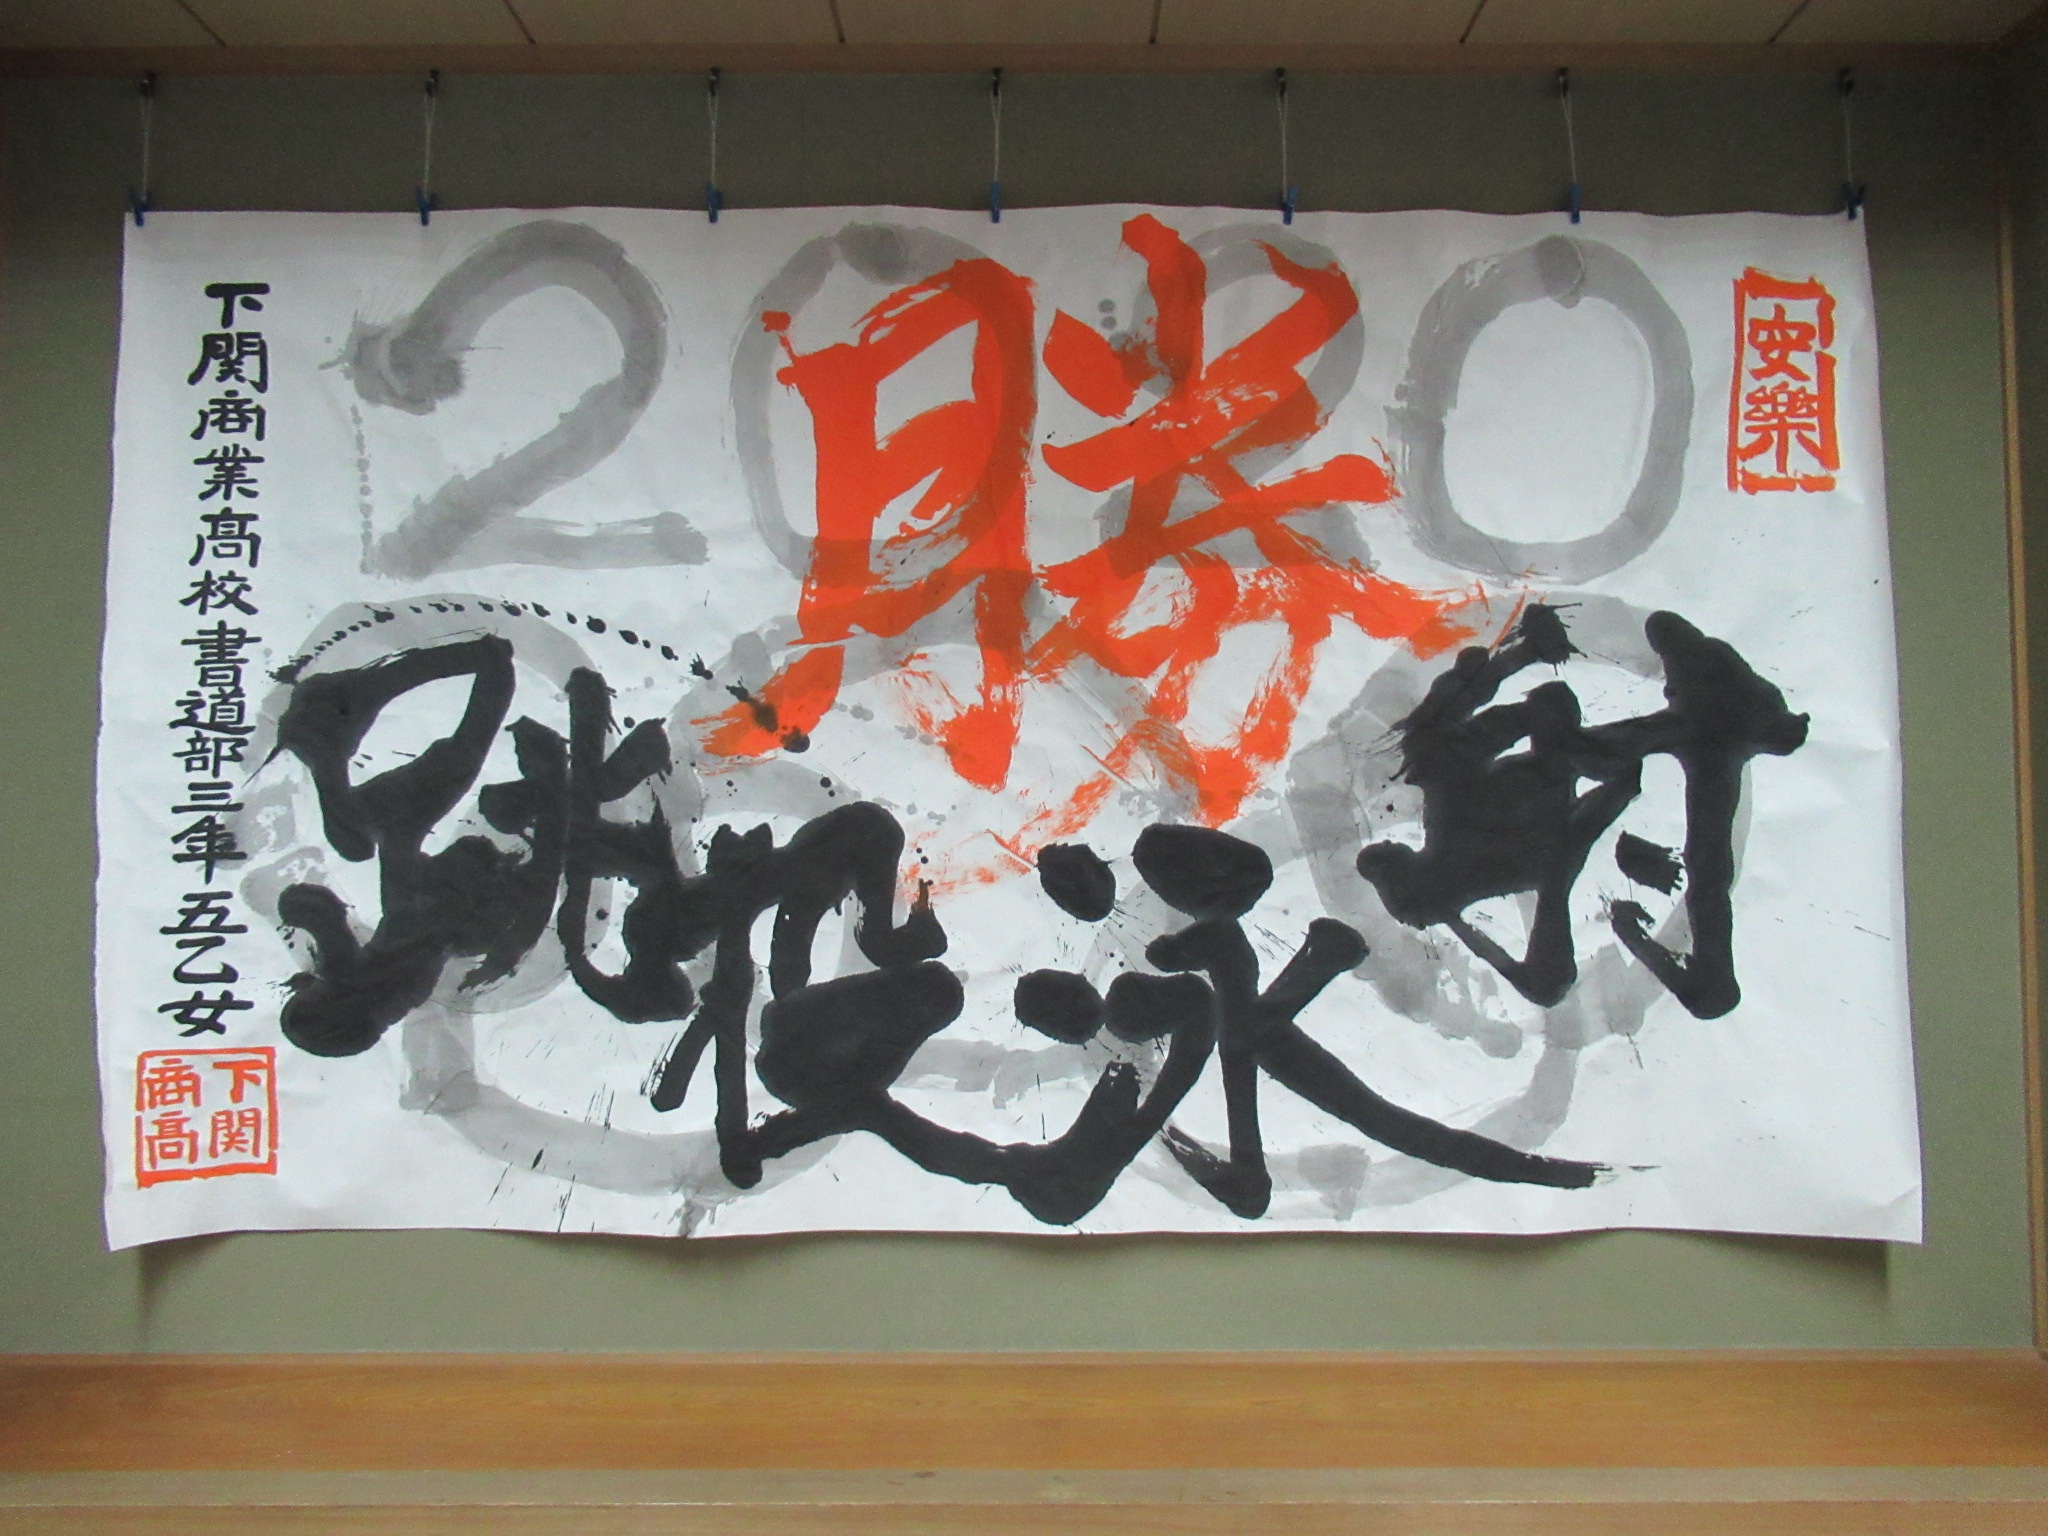 2020
勝
安樂
射
泳
投
跳
下関商業高校書道部三年五乙女
下関
商高